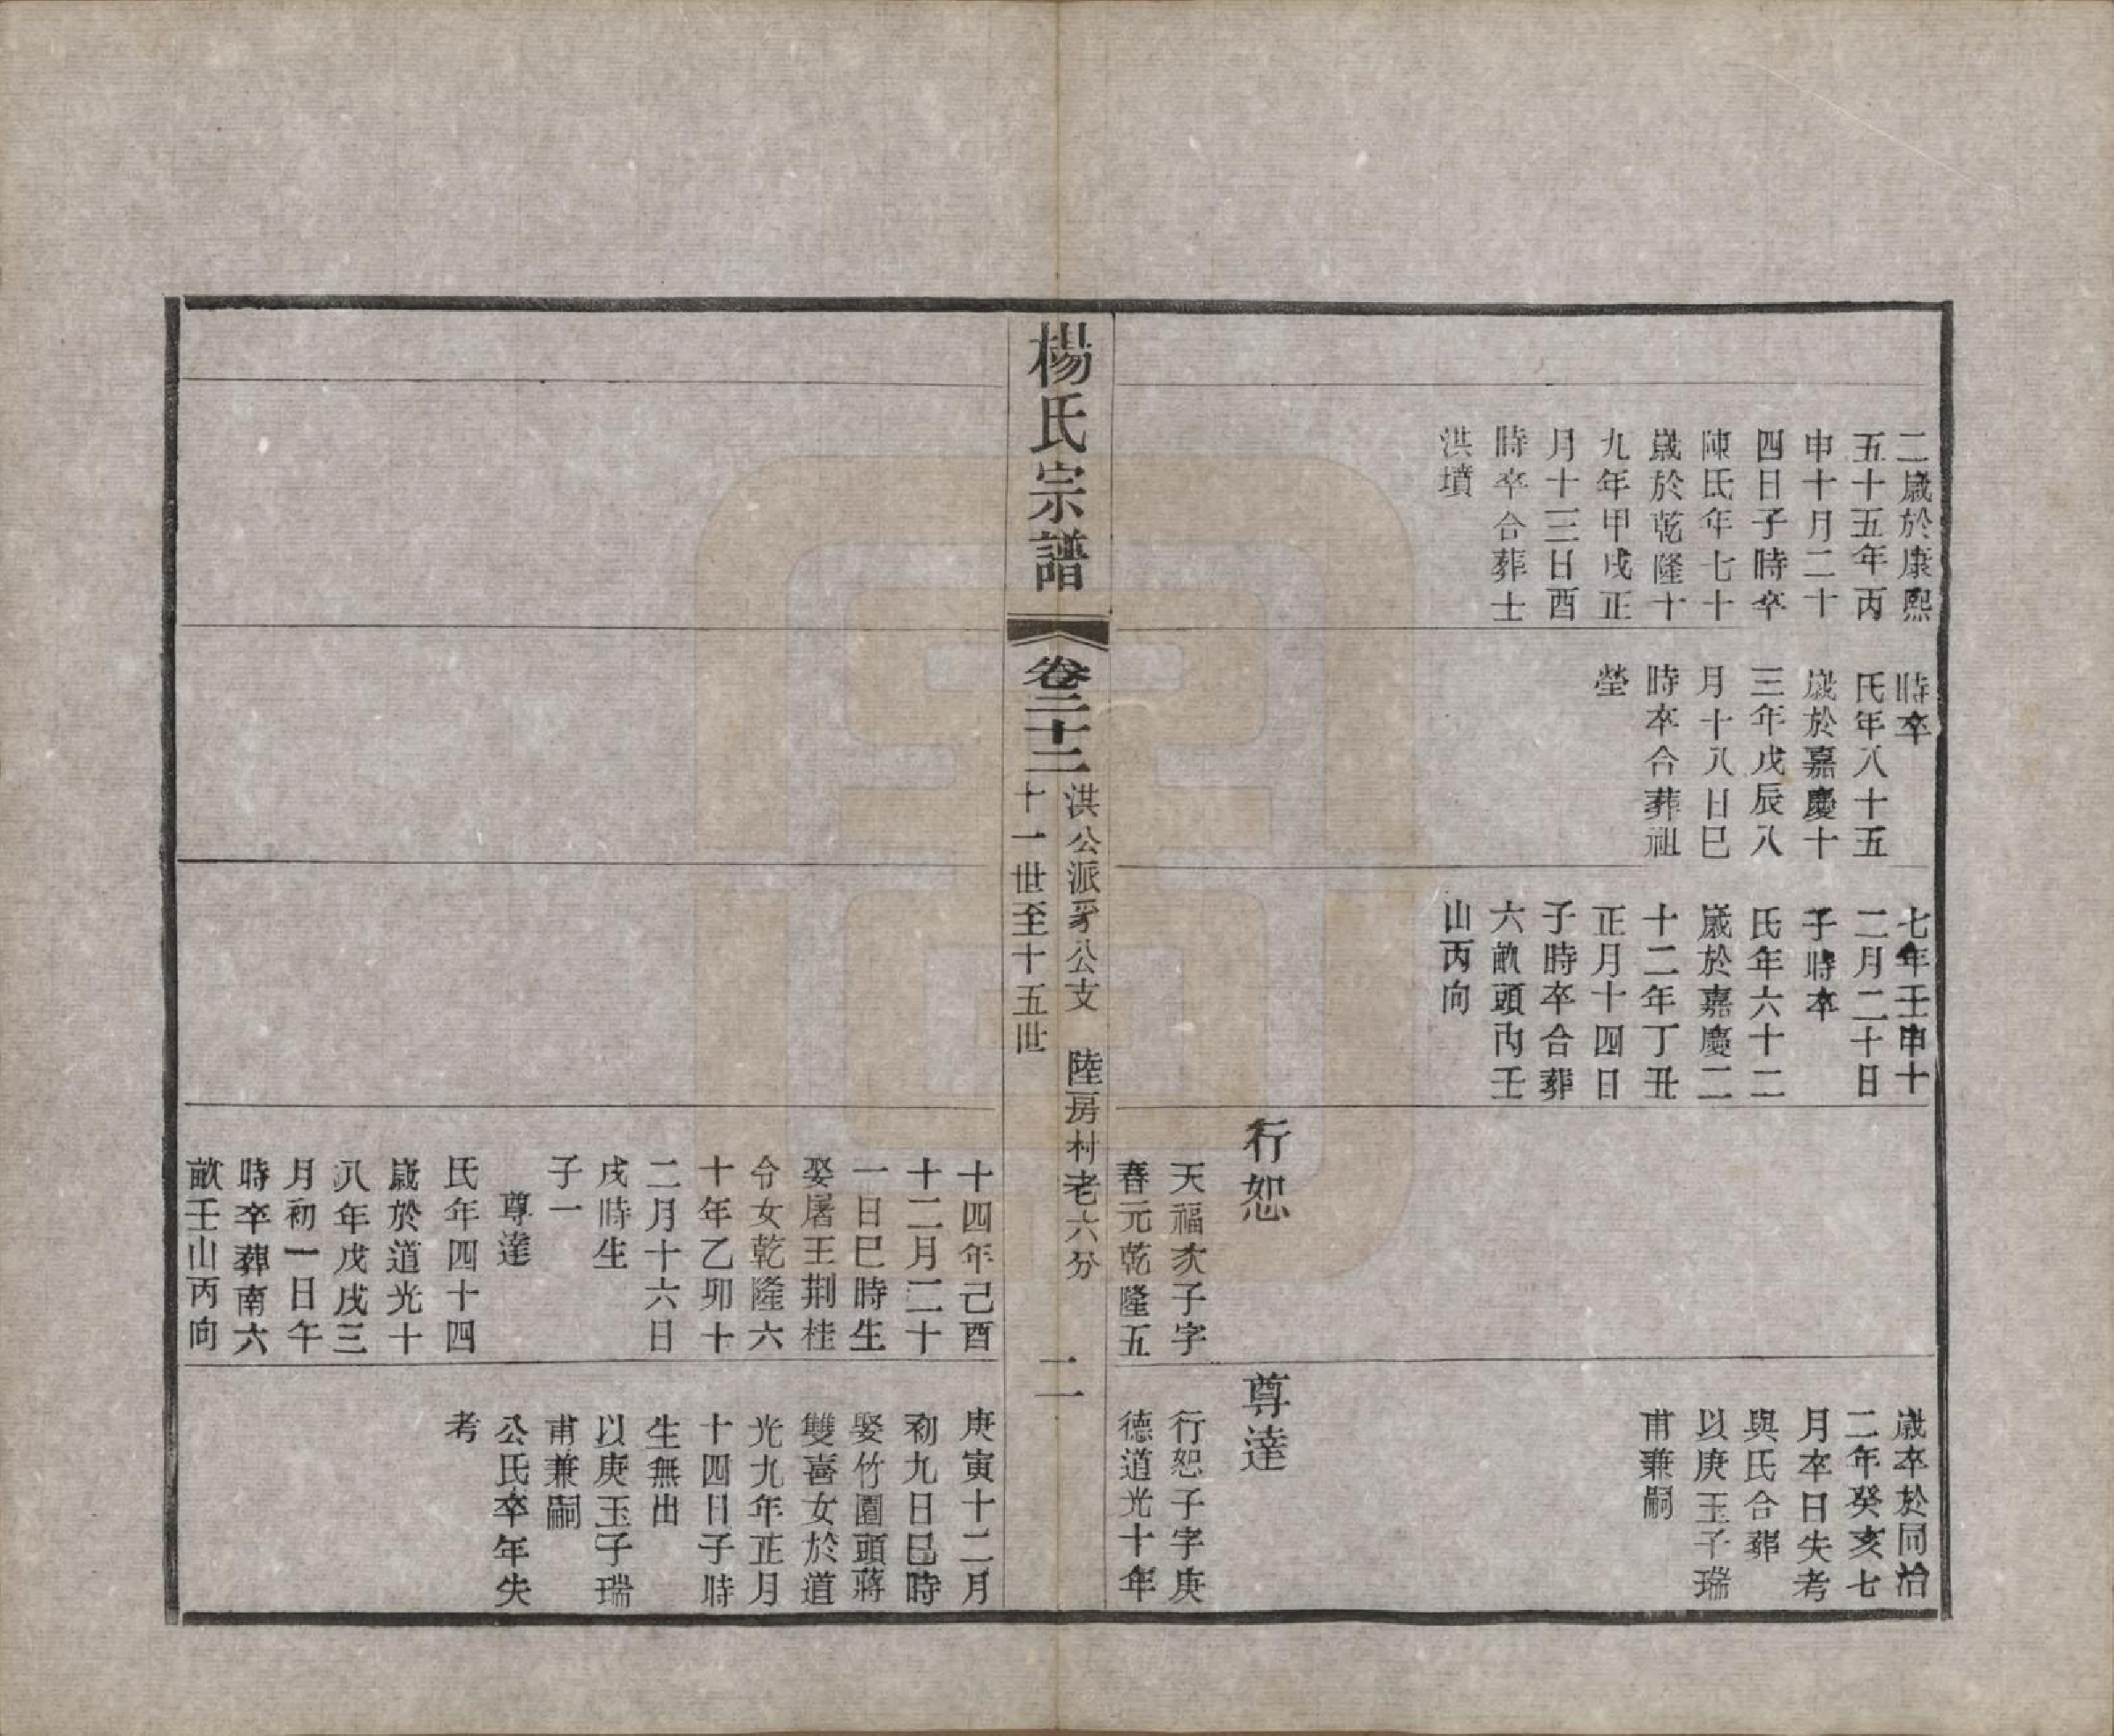 二歲於康熙
五十五年丙
申十月二十
四日子時卒
陳氏年七十
歲於乾隆十
九年甲戌正
月十三日酉
時卒合葬士
洪墳
時卒
氏年八十五
歲於嘉慶十
三年戊辰八
月十八日巳
時卒合葬祖
塋
七年壬申十
二月二十日
子時卒
氏年六十二
歲於嘉慶二
十二年丁丑
正月十四日
子時卒合葬
六畝頭內壬
山丙向
行恕
天福次子字
春元乾隆五
歲卒於同治
二年癸亥七
月卒日失考
與氏合葬
以庚玉子瑞
甫兼嗣
尊達
行恕子字庚
德道光十年
楊氏宗譜
卷二十二
洪公派豸公支　陸房村老六分
十一世至十五世
二一
十四年己酉
十二月二十
一日巳時生
娶屠王荆桂
令女乾隆六
十年乙卯十
二月十六日
戌時生
子一
尊達
氏年四十四
歲於道光十
八年戊戌三
月初一日午
時卒葬南六
畝壬山丙向
庚寅十二月
初九日巳時
娶竹園頭蔣
雙喜女於道
光九年正月
十四日子時
生無出
以庚玉子瑞
甫兼嗣
公氏卒年失
考